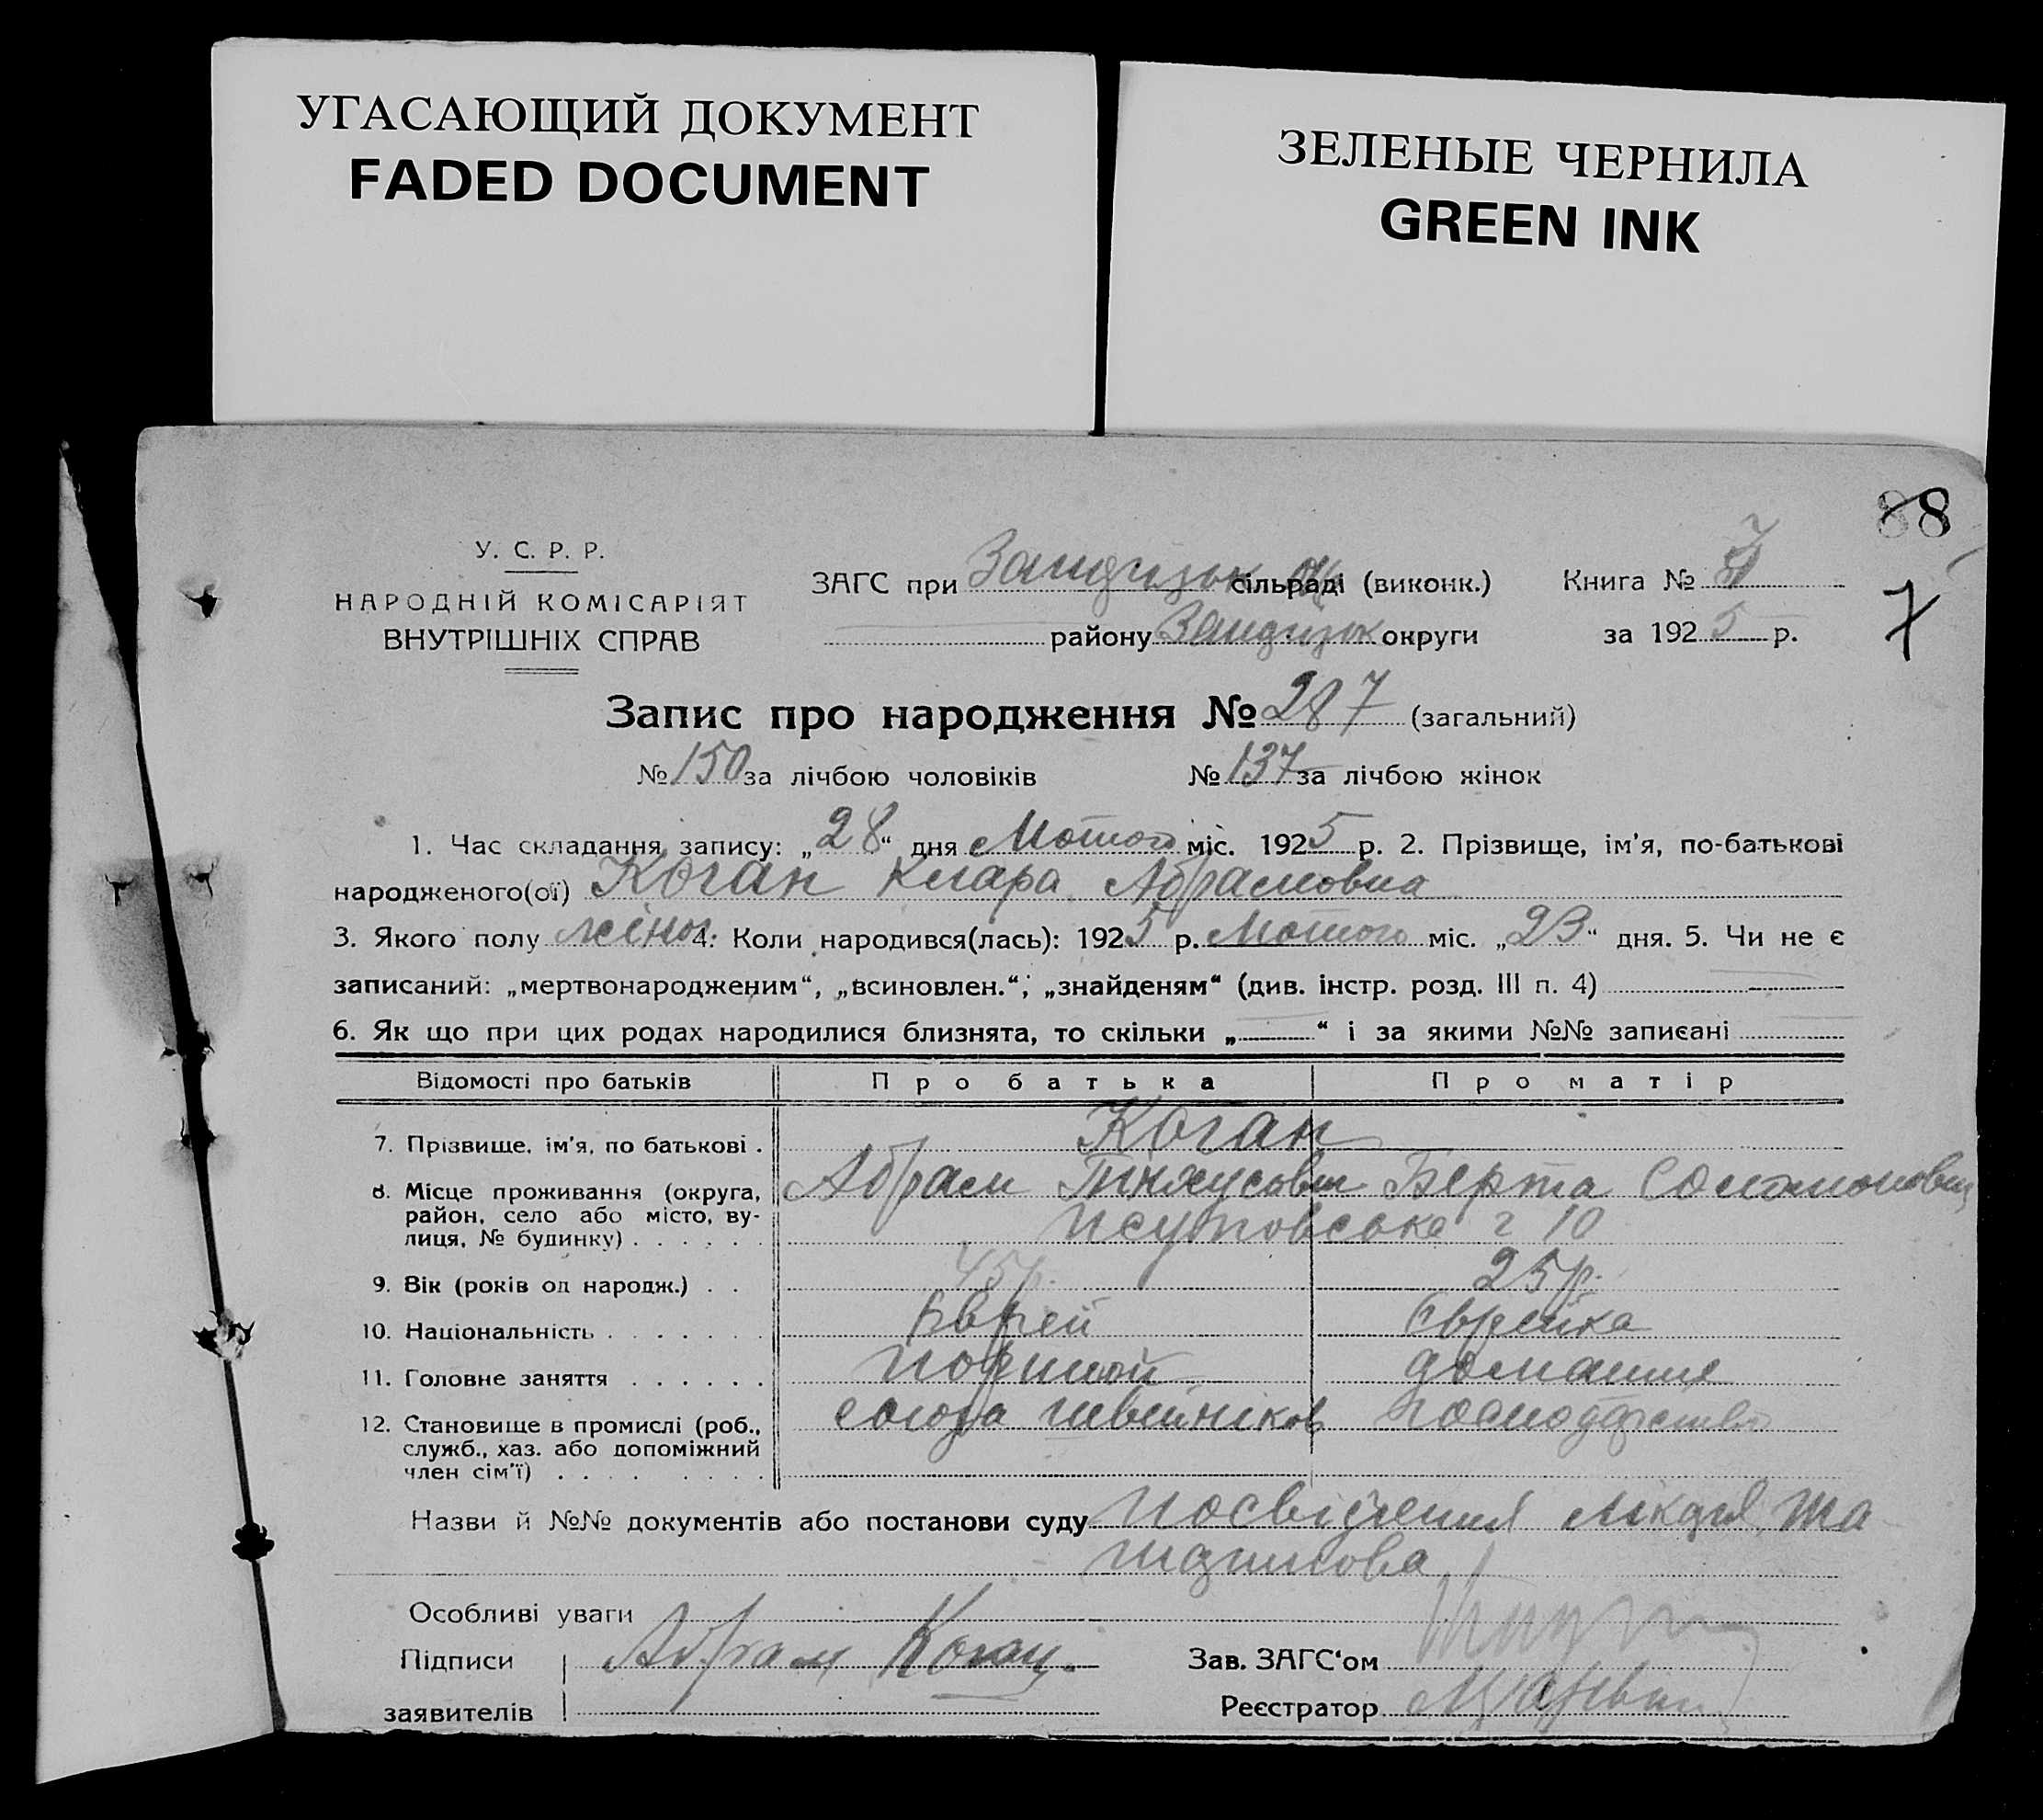 УГАСАЮЩИЙ ДОКУМЕНТ
FADED DOCUMENT
ЗЕЛЕНЫЕ ЧЕРНИЛА
GREEN INK
88
7
У. С. Р. Р.
НАРОДНІЙ КОМІСАРІЯТ
ВНУТРІШНІХ СПРАВ
ЗАГС при сільраді (виконк.) Книга №
району округи за 1925 р.
Запис про народження № 287 (загальний)
№ 150 за лічбою чоловіків № 137 за лічбою жінок
1. Час складання запису: „28“ дня Лютого міс. 1925 р. 2. Прізвище, ім'я, по-батькові
народженого(ої) Коган Клара Абрамовна
3. Якого полу жіноч. 4. Коли народився(лась): 1925 р. Лютого міс. „23“ дня. 5. Чи не є
записаний: „мертвонародженим“, „всиновлен.“, „знайденям“ (див. інстр. розд. III п. 4)
6. Як що при цих родах народилися близнята, то скільки „—“ і за якими №№ записані
Відомості про батьків Про батька Про матір
7. Прізвище, ім'я, по батькові . Коган
Абрам Берта Соломоновна
8. Місце проживання (округа,
район, село або місто, ву-
лиця, № будинку) . . . . . . 10
9. Вік (років од народж.) . . 45р. 25р.
10. Національність . . . . . . . Єврей Єврейка
11. Головне заняття . . . . . . домашнє
12. Становище в промислі (роб., союза швейніков господарство
служб., хаз. або допоміжний
член сім'ї) . . . . . . . .
Назви й №№ документів або постанови суду Посвідчення лікаря
Особливі уваги
Підписи Абрам Коган. Зав. ЗАГС‘ом
заявителів Реєстратор